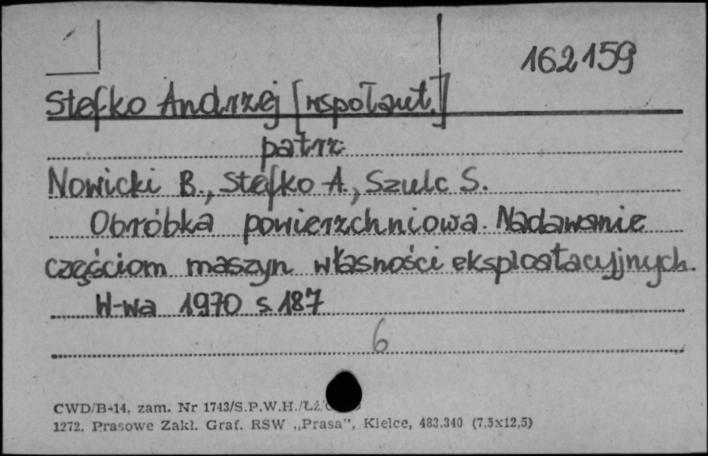 162159
Stefko Andrzej [współaut.]
patrz
Nowicki B., Stefko A., Szulc S.
Obróbka powierzchniowa. Nadawanie
częściom maszyn własności eksploatacyjnych.
W-wa 1970 s. 187
6
CWD/B-14, zam. Nr 1743/S.P.W.H./Łż/
1272. Prasowe Zakł. Graf. RSW „Prasa", Kielce, 483.340 (7,5x12,5)